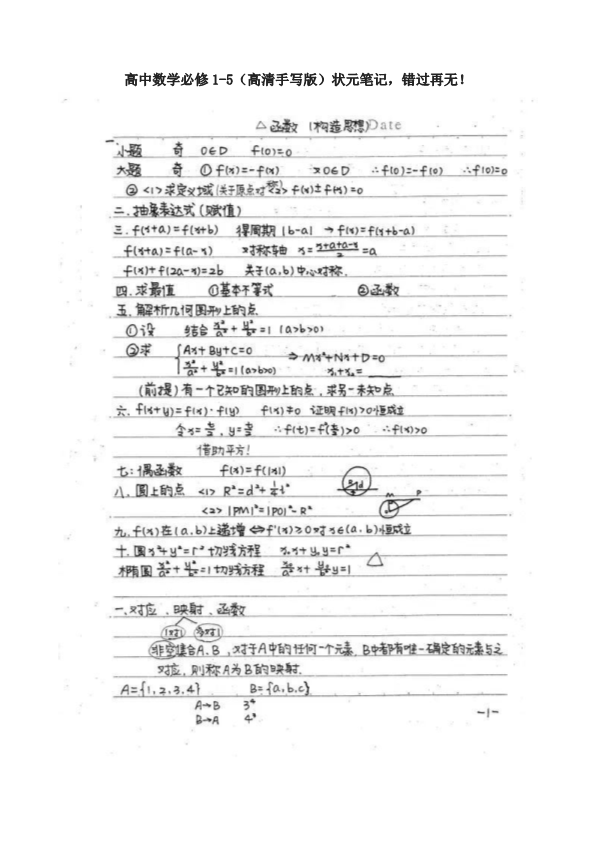 高中数学必修 1-5（高清手写版）状元笔记，错过再无！
△函数（构造思想）Date
一.小题 奇 0∈D f(0)=0
大题 奇 ① f(x)=-f(x) x0∈D ∴f(0)=-f(0) ∴f(0)=0
② <1>求定义域(关于原点对称) <2> f(x)±f(-x)=0
二.抽象表达式(赋值)
三.f(x+a)=f(x+b) 得周期 |b-a| → f(x)=f(x+b-a)
f(x+a)=f(a-x) 对称轴 x=(x+a+a-x)/2=a
f(x)+f(2a-x)=2b 关于(a,b)中心对称.
四.求最值 ①基本不等式 ②函数
五.解析几何图形上的点
①设 结合 x²/a²+y²/b²=1 (a>b>0)
②求 {Ax+By+C=0 ⇒ Mx²+Nx+D=0
x²/a²+y²/b²=1(a>b>0) x₁+x₂=____
(前提)有一个已知的图形上的点,求另一未知点
六.f(x+y)=f(x)·f(y) f(x)≠0 证明f(x)>0恒成立
令x=t/2,y=t/2 ∴f(t)=f²(t/2)>0 ∴f(x)>0
借助平方!
七:偶函数 f(x)=f(|x|)
八.圆上的点 <1> R²=d²+1/4 l²
<2> |PM|²=|PO|²-R²
九.f(x)在(a.b)上递增⇔f'(x)≥0对x∈(a.b)恒成立
十.圆x²+y²=r²切线方程 x₀x+y₀y=r²
椭圆 x²/a²+y²/b²=1切线方程 x₀/a² x+y₀/b² y=1 △
一.对应.映射.函数
1对1 多对1
非空集合A.B,对于A中的任何一个元素,B中都有唯一确定的元素与之
对应,则称A为B的映射.
A={1,2,3,4} B={a,b,c}
A→B 3⁴
B→A 4³
-1-